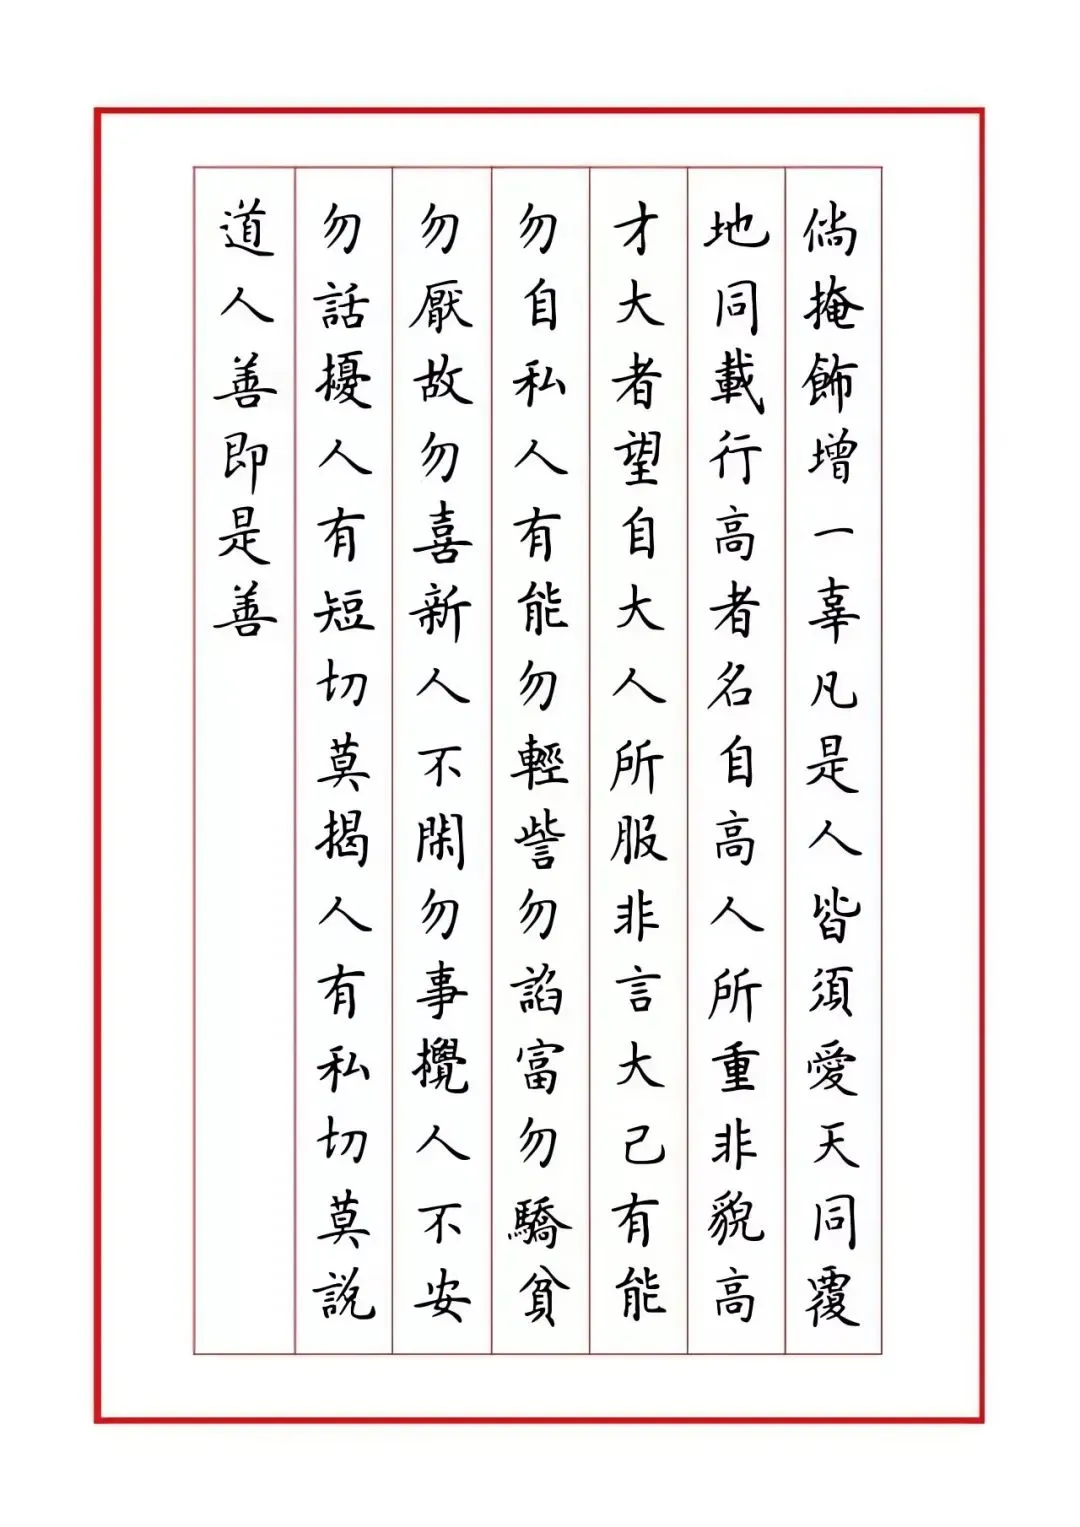 倘掩飾增一辜凡是人皆須愛天同覆
地同載行高者名自高人所重非貌高
才大者望自大人所服非言大己有能
勿自私人有能勿輕訾勿諂富勿驕貧
勿厭故勿喜新人不閑勿事攪人不安
勿話擾人有短切莫揭人有私切莫說
道人善即是善